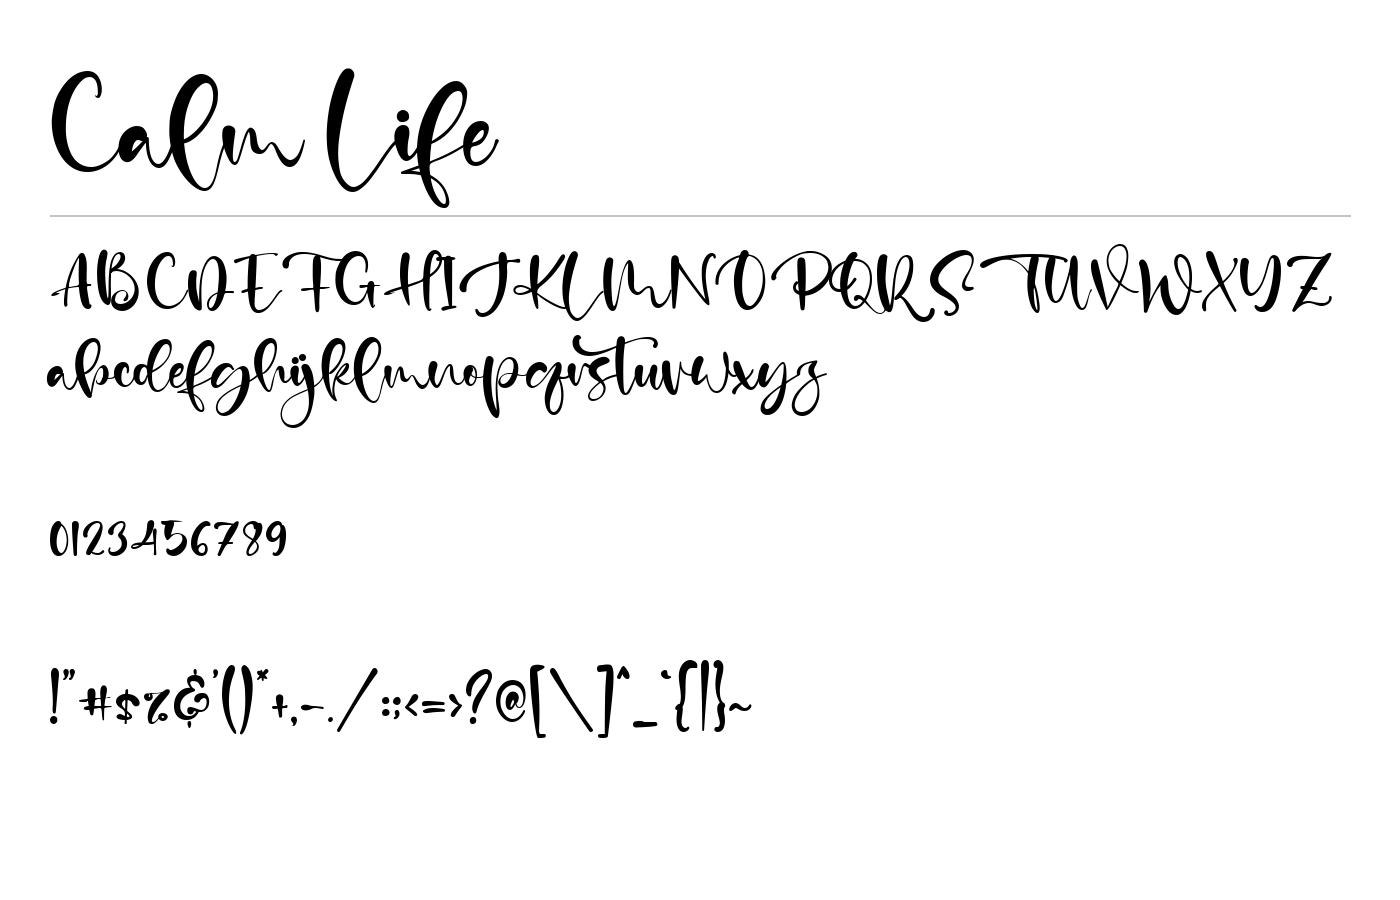 Calm Life
ABCDEFGHIJKLMNOPQRSTUVWXYZ
abcdefghijklmnopqrstuvwxyz
0123456789
!"#$%&'()*+,-./:;<=>?@[\]^_`{|}~